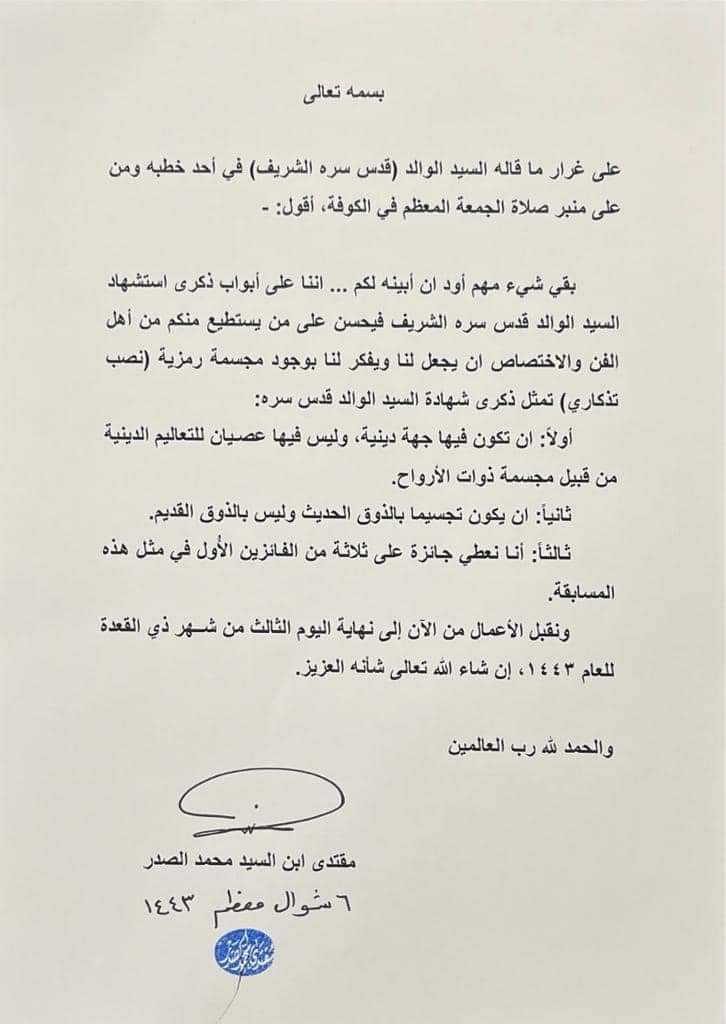 بسمه تعالى
على غرار ما قاله السيد الوالد (قدس سره الشريف) في أحد خطبه ومن
على منبر صلاة الجمعة المعظم في الكوفة، أقول: -
بقي شيء مهم أود ان أبينه لكم ... اننا على أبواب ذكرى استشهاد
السيد الوالد قدس سره الشريف فيحسن على من يستطيع منكم من أهل
الفن والاختصاص ان يجعل لنا ويفكر لنا بوجود مجسمة رمزية (نصب
تذكاري) تمثل ذكرى شهادة السيد الوالد قدس سره:
أولاً: ان تكون فيها جهة دينية، وليس فيها عصيان للتعاليم الدينية
من قبيل مجسمة ذوات الأرواح.
ثانياً: ان يكون تجسيما بالذوق الحديث وليس بالذوق القديم.
ثالثاً: أنا نعطي جائزة على ثلاثة من الفائزين الأُول في مثل هذه
المسابقة.
ونقبل الأعمال من الآن إلى نهاية اليوم الثالث من شــهر ذي القعدة
للعام ١٤٤٣، إن شاء الله تعالى شأنه العزيز.
والحمد لله رب العالمين
مقتدى ابن السيد محمد الصدر
٦ شوال معظم ١٤٤٣